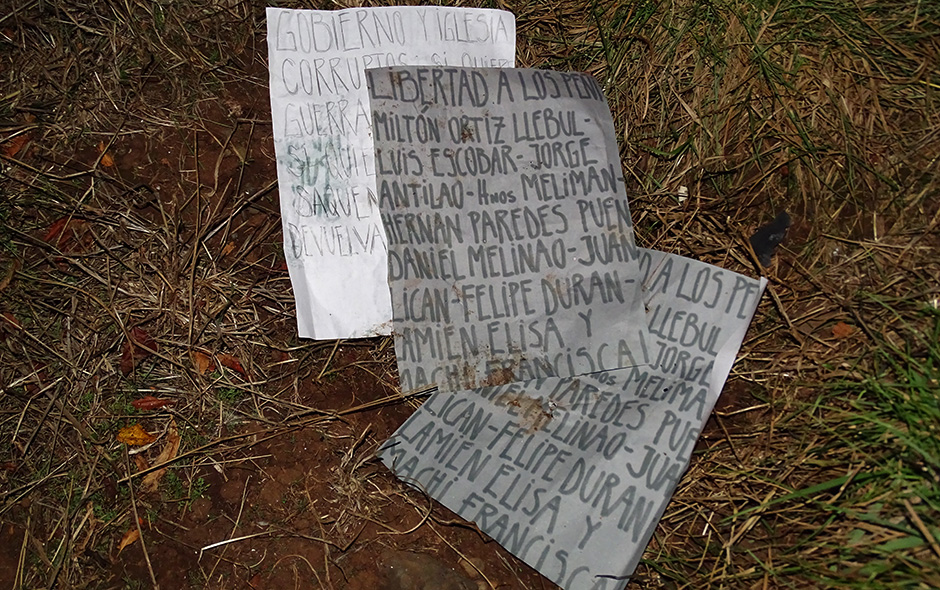 GOBIERNO Y IGLESIA
CORRUPTOS
GUERRA
SAQUEN
DEVUELVA
LIBERTAD A LOS PENI
MILTÓN ORTIZ LLEBUL-
LUIS ESCOBAR- JORGE
ANTILAO- Hnos MELIMAN-
HERNAN PAREDES PUEN
DANIEL MELINAO- JUAN
LICAN-FELIPE DURAN-
LAMIEN ELISA Y
MACHI FRANCISCA
A LOS PE
LLEBUL
JORGE
nos MELIMA
PAREDES PUE
MELINAO- JUA
LICAN-FELIPE DURAN
LAMIEN ELISA Y
MACHI FRANCISCA